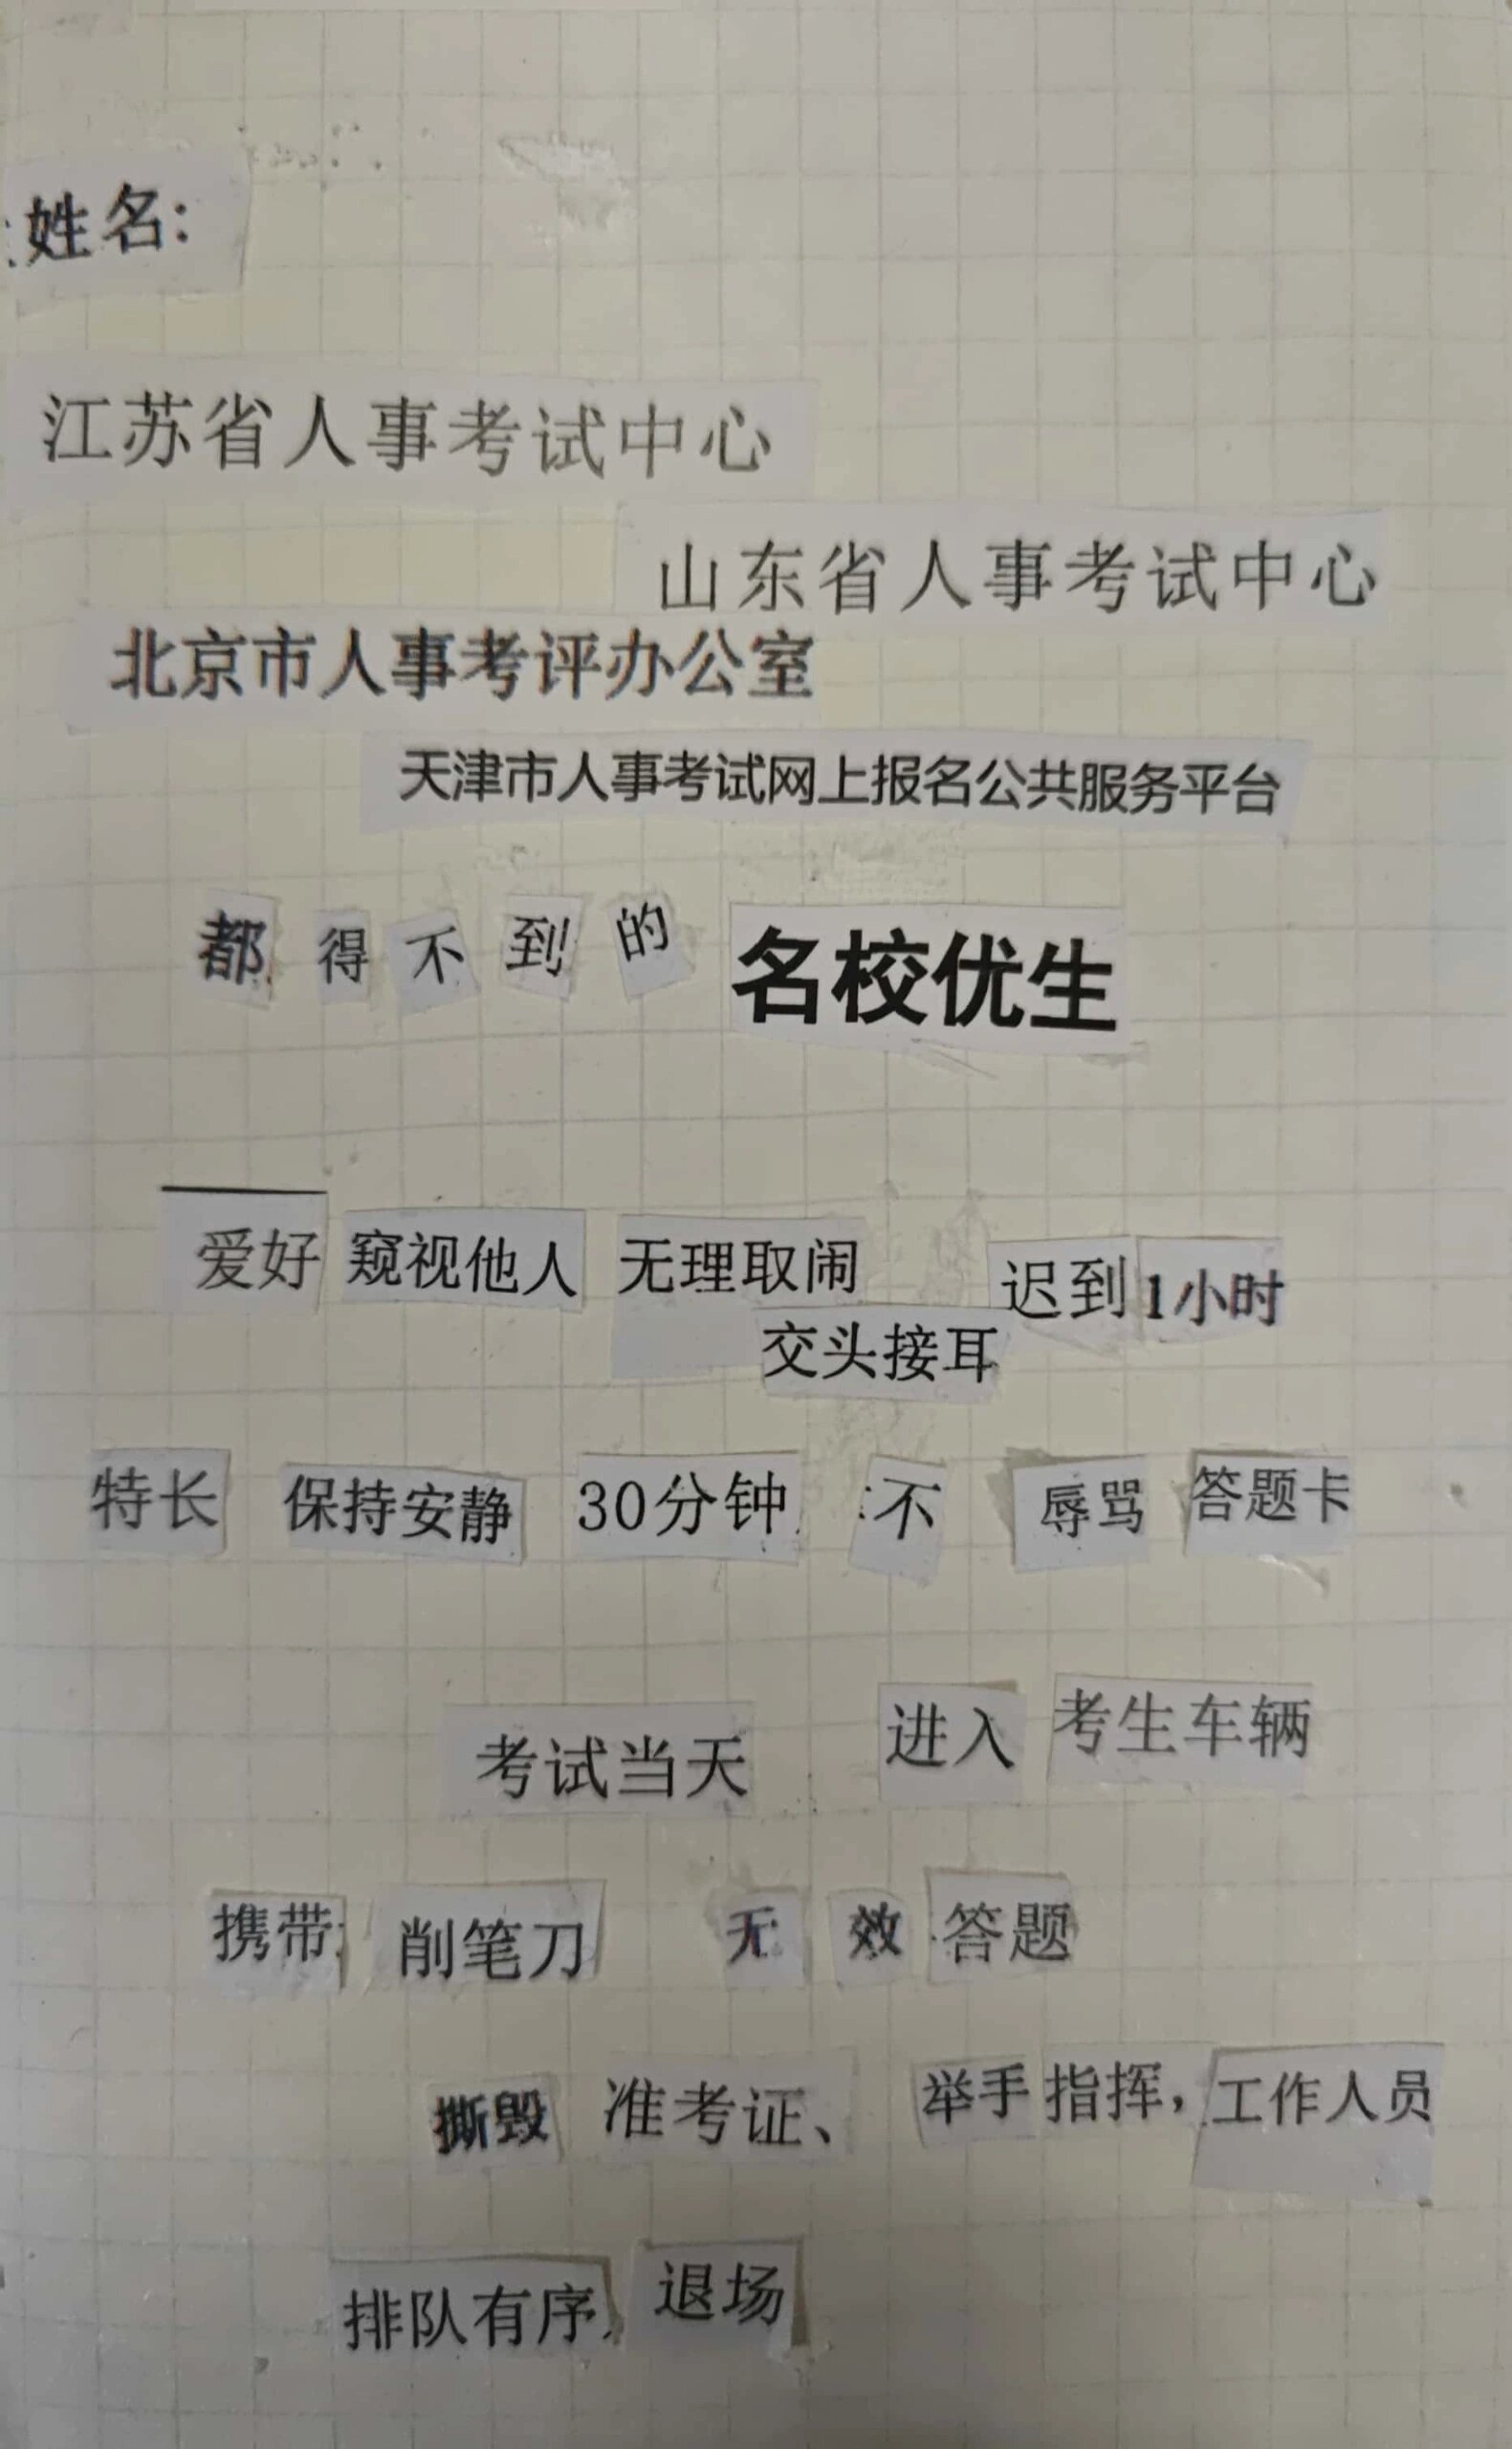 姓名：
江苏省人事考试中心
山东省人事考试中心
北京市人事考评办公室
天津市人事考试网上报名公共服务平台
都 得 不 到 的 名校优生
爱好 窥视他人 无理取闹 迟到 1小时
交头接耳
特长 保持安静 30分钟 不 辱骂 答题卡
考试当天 进入 考生车辆
携带 削笔刀 无 效 答题
撕毁 准考证、 举手 指挥，工作人员
排队有序 退场